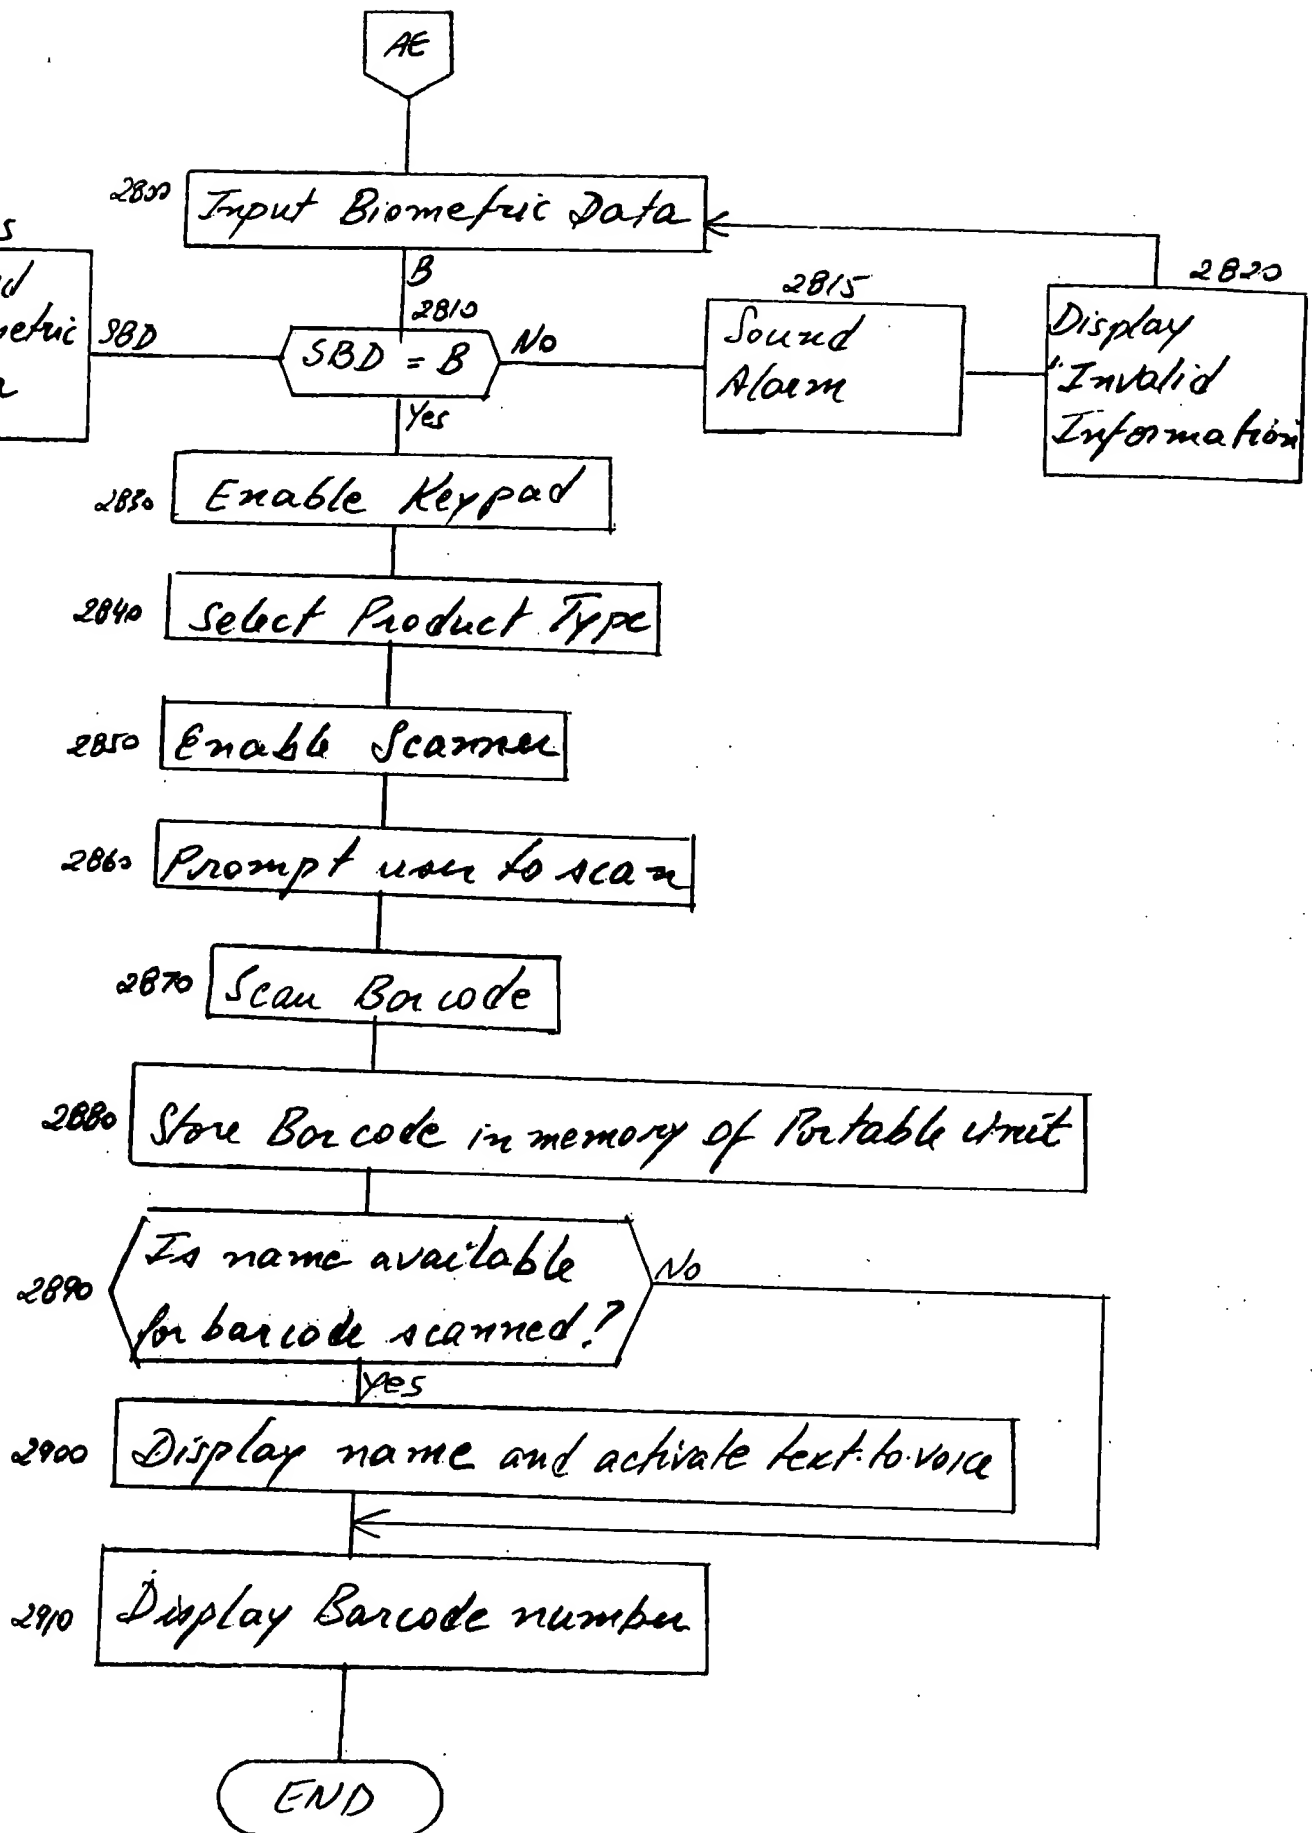 AE
2800
Input Biometric Data
B
2810
SBD
SBD = B
No
2815
Sound
Alarm
2820
Display
"Invalid
Information
Yes
2830
Enable Keypad
2840
Select Product Type
2850
Enable Scanner
2860
Prompt user to scan
2870
Scan Barcode
2880
Store Barcode in memory of Portable Unit
2890
Is name available
for barcode scanned?
No
Yes
2900
Display name and activate text-to-voice
2910
Display Barcode number
END